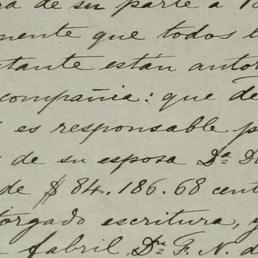 ra de su parte a
mente que todos
tante están autor
compañia: que de
es responsable p
de su esposa Dª D
de $ 84.186.68 cent
torgado escritura, y
fabril Dn F. N. d